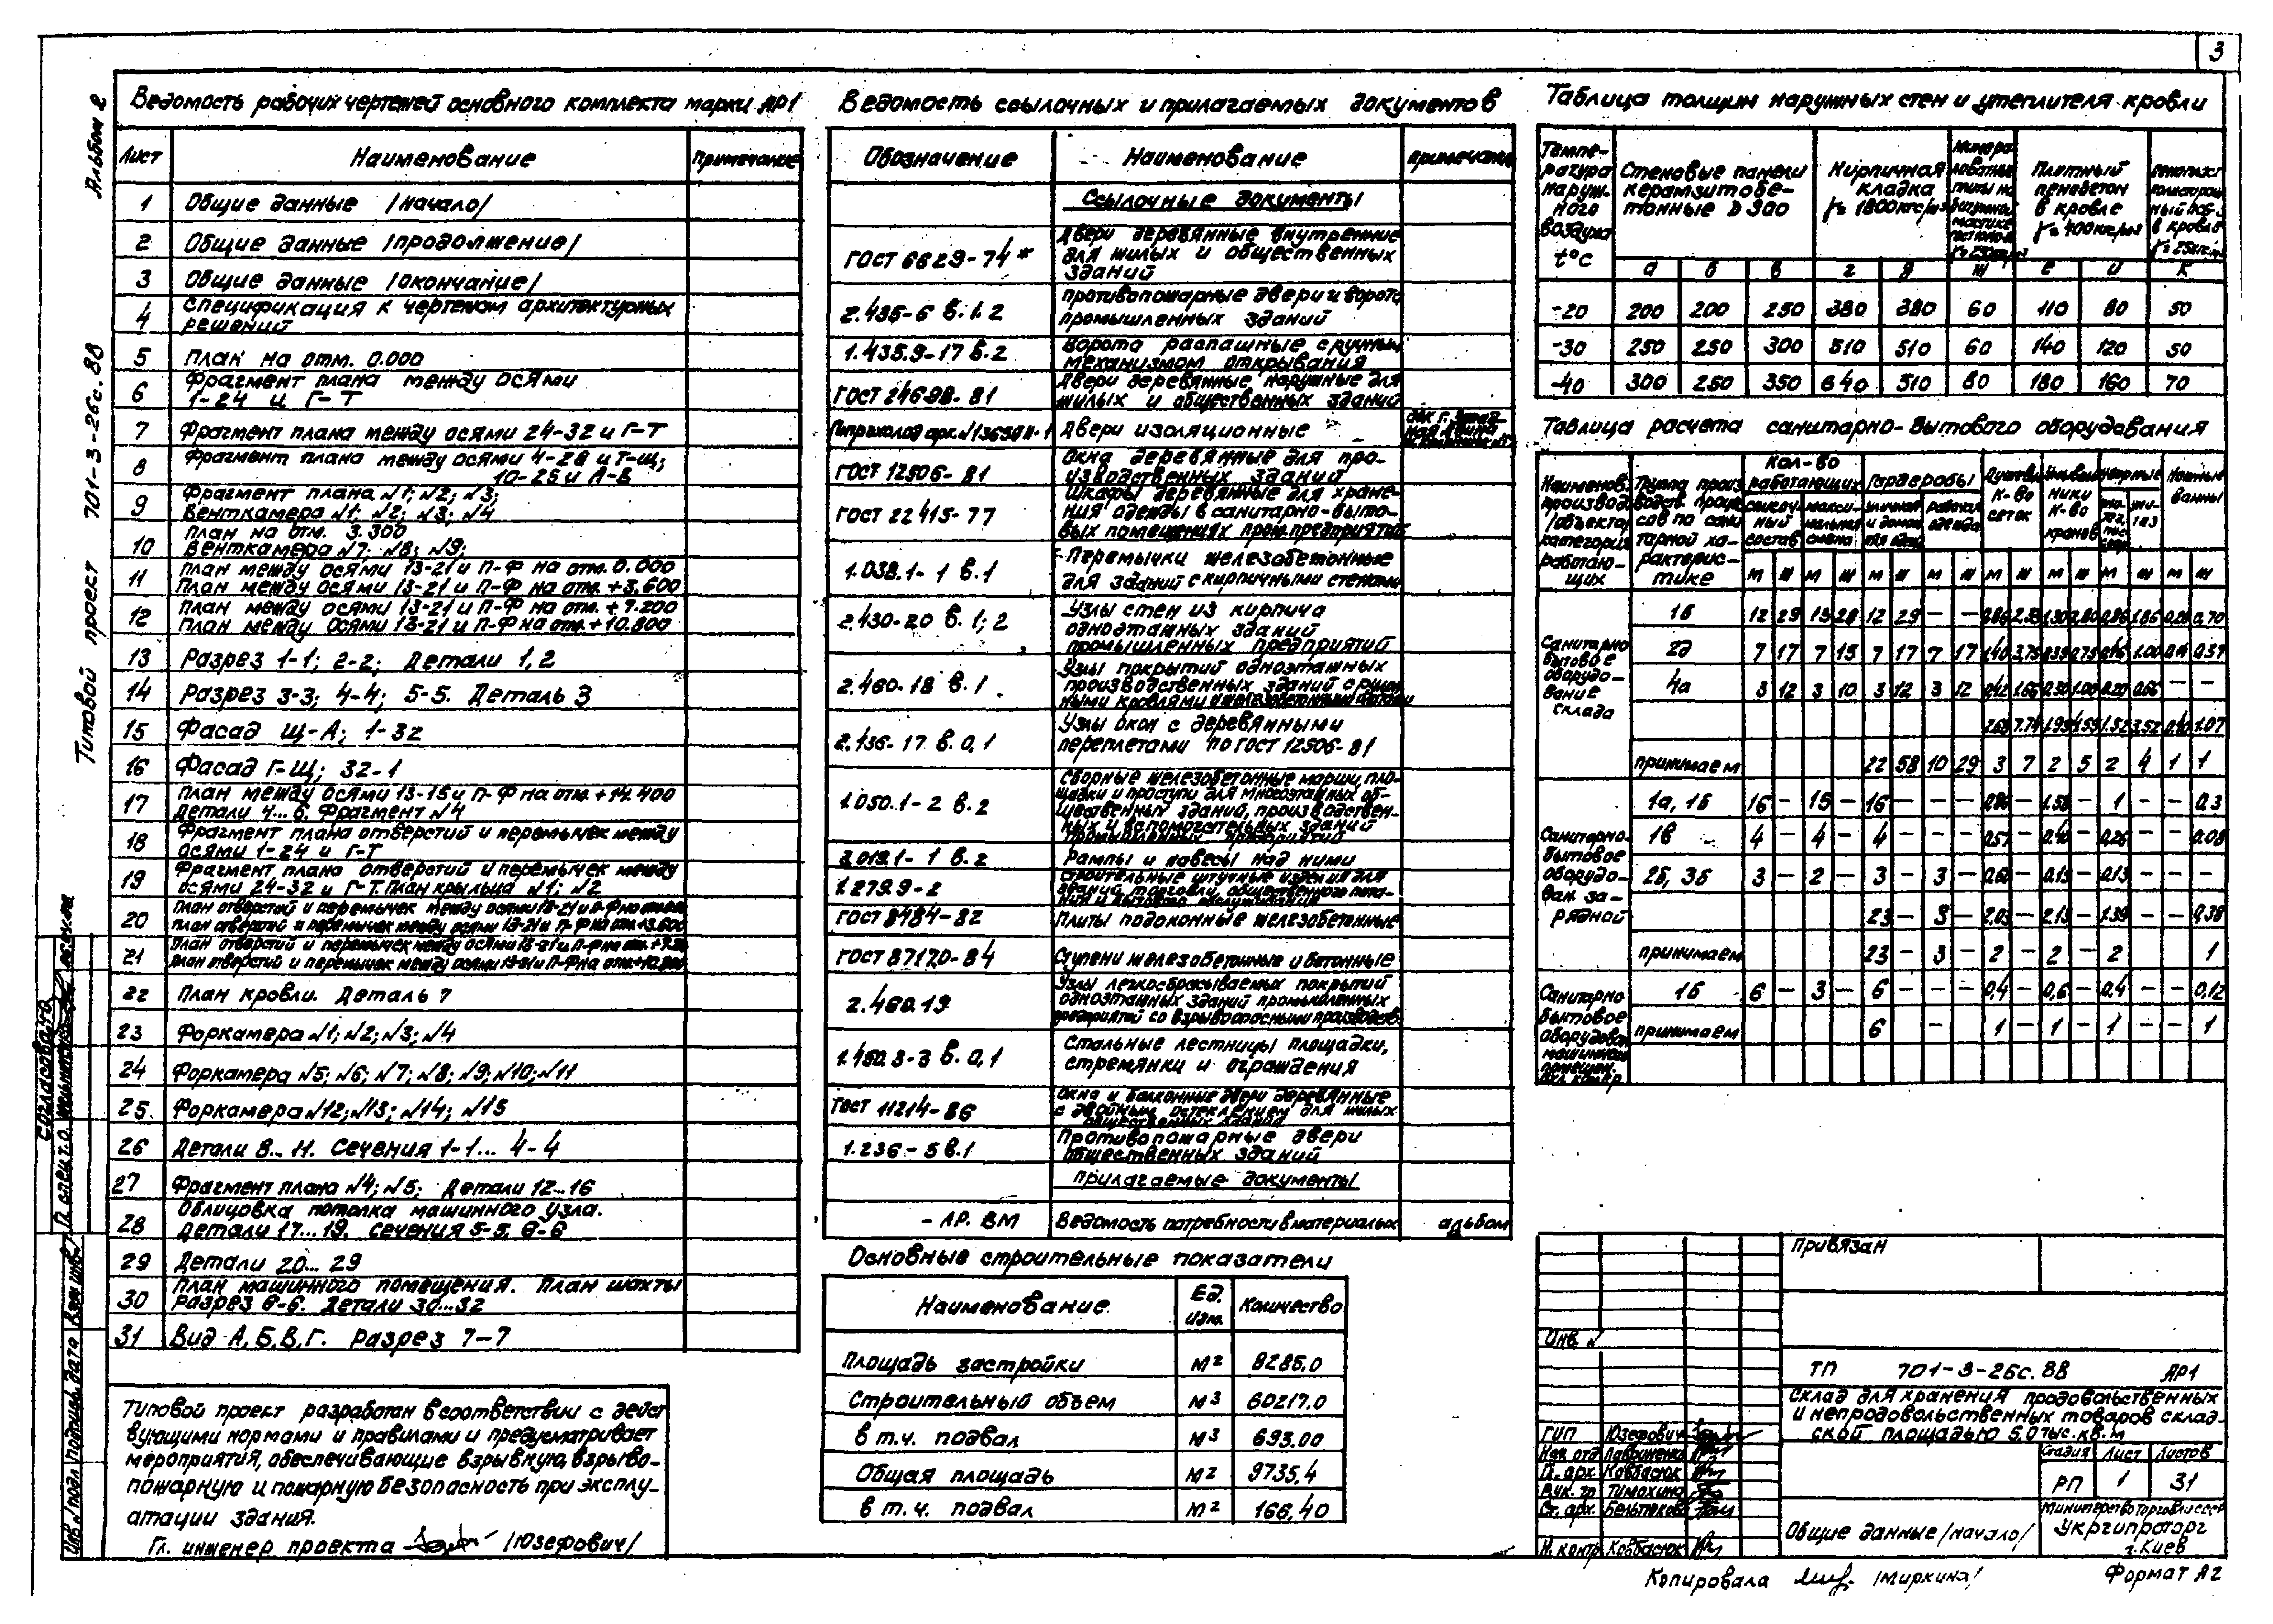 3
Альбом 2
Типовой проект 701-3-26с.88
Ведомость рабочих чертежей основного комплекта марки АР1
Лист Наименование Примечание
1 Общие данные /начало/
2 Общие данные /продолжение/
3 Общие данные /окончание/
4 Спецификация к чертежам архитектурных
решений
5 План на отм. 0.000
6 Фрагмент плана между осями
1-24 и Г-Т
7 Фрагмент плана между осями 24-32 и Г-Т
8 Фрагмент плана между осями 4-28 и Т-Щ;
10-25 и А-В
9 Фрагмент плана №1; №2; №3;
Венткамера №1; №2; №3; №4
10 План на отм. 3.300
Венткамера №7; №8; №9;
11 План между осями 13-21 и П-Ф на отм. 0.000
План между осями 13-21 и П-Ф на отм. +3.600
12 План между осями 13-21 и П-Ф на отм. +7.200
План между осями 13-21 и П-Ф на отм. +10.800
13 Разрез 1-1; 2-2; Детали 1,2
14 Разрез 3-3; 4-4; 5-5. Деталь 3
15 Фасад Щ-А; 1-32
16 Фасад Г-Щ; 32-1
17 План между осями 13-15 и П-Ф на отм. +14.400
Детали 4...6. Фрагмент №4
18 Фрагмент плана отверстий и перемычек между
осями 1-24 и Г-Т
19 Фрагмент плана отверстий и перемычек между
осями 24-32 и Г-Т. План крыльца №1; №2
20 План отверстий и перемычек между осями 13-21 и П-Ф на отм.
План отверстий и перемычек между осями 13-21 и П-Ф на отм. +3.600
21 План отверстий и перемычек между осями 13-21 и П-Ф на отм. +7.20
План отверстий и перемычек между осями 13-21 и П-Ф на отм. +10.800
22 План кровли. Деталь 7
23 Форкамера №1; №2; №3; №4
24 Форкамера №5; №6; №7; №8; №9; №10; №11
25. Форкамера №12; №13; №14; №15
26 Детали 8... 11. Сечения 1-1... 4-4
27 Фрагмент плана №4; №5; Детали 12...16
28 Облицовка потолка машинного узла.
Детали 17...19. Сечения 5-5, 6-6
29 Детали 20... 29
30 План машинного помещения. План шахты
Разрез 6-6. Детали 30...32
31 Вид А, Б, В, Г. Разрез 7-7
Типовой проект разработан в соответствии с дейст
вующими нормами и правилами и предусматривает
мероприятия, обеспечивающие взрывную, взрыво-
пожарную и пожарную безопасность при эксплу-
атации здания.
Гл. инженер проекта /Юзефович/
Ведомость ссылочных и прилагаемых документов
Обозначение Наименование Примечание
Ссылочные документы
ГОСТ 6629-74* Двери деревянные внутренние
для жилых и общественных
зданий
2.435-6 в.1.2 Противопожарные двери и ворота
промышленных зданий
1.435.9-17 в.2 Ворота распашные с ручным
механизмом открывания
ГОСТ 24698-81 Двери деревянные наружные для
жилых и общественных зданий
Двери изоляционные
ГОСТ 12506-81 Окна деревянные для про-
изводственных зданий
ГОСТ 22415-77 Шкафы деревянные для хране-
ния одежды в санитарно-быто-
вых помещениях пром. предприятий
1.038.1-1 в.1 Перемычки железобетонные
для зданий с кирпичными стенами
2.430-20 в.1; 2 Узлы стен из кирпича
одноэтажных зданий
промышленных предприятий
2.460-18 в.1 Узлы покрытий одноэтажных
производственных зданий с рулон
ными кровлями и железобетонными плитами
2.436-17 в.0,1 Узлы окон с деревянными
переплетами по ГОСТ 12506-81
1.050.1-2 в.2 Сборные железобетонные марши, пло-
щадки и проступи для многоэтажных об-
щественных зданий, производствен-
ных и вспомогательных зданий
промышленных предприятий
3.019.1-1 в.2 Рампы и навесы над ними
1.279.9-2 Строительные штучные изделия для
зданий торговли, общественного пита-
ния и бытового обслуживания
ГОСТ 8484-82 Плиты подоконные железобетонные
ГОСТ 8717.0-84 Ступени железобетонные и бетонные
2.460.19 Узлы легкосбрасываемых покрытий
одноэтажных зданий промышленных
предприятий со взрывоопасными производств.
1.450.3-3 в.0,1 Стальные лестницы площадки,
стремянки и ограждения
ГОСТ 11214-86 Окна и балконные двери деревянные
с двойным остеклением для жилых
общественных зданий
1.236-5 в.1 Противопожарные двери
общественных зданий
Прилагаемые документы
- АР. ВМ Ведомость потребности в материалах альбом
Основные строительные показатели
Наименование Ед. изм. Количество
Площадь застройки м2 8285,0
Строительный объем м3 60217.0
в т.ч. подвал м3 693.00
Общая площадь м2 9735.4
в т.ч. подвал м2 166,40
Таблица толщин наружных стен и утеплителя кровли
Темпе-
ратура
наруж-
ного
воздуха
t°C
Стеновые панели
керамзитобе-
тонные D 900
Кирпичная
кладка
γ=1800кгс/м3
Плитный
пенобетон
в кровле
γ=400кгс/м3
а б в г д ж е и к
-20 200 200 250 380 380 60 110 80 50
-30 250 250 300 510 510 60 140 120 50
-40 300 250 350 640 510 80 180 160 70
Таблица расчета санитарно-бытового оборудования
Наименов.
производ.
/объекта
категория
работаю-
щих
Группа произ
водств. процес
сов по сани
тарной ха-
рактерис-
тике
Кол-во
работающих
Гардеробы
М Ж М Ж М Ж М Ж М Ж М Ж М Ж М Ж
Санитарно
бытовое
оборудо-
вание
склада
1б 12 29 15 28 12 29 - -
2д 7 17 7 15 7 17 7 17
4а 3 12 3 10 3 12 3 12
принимаем 22 58 10 29 3 7 2 5 2 4 1 1
Санитарно-
бытовое
оборудо-
ван. за-
рядной
1а, 1б 16 - 15 - 16 - - - 1 - - 0.3
1в 4 - 4 - 4 - - - 0.08
2б, 3б 3 - 2 - 3 - 3 -
23 - 3 - 2.03 - 2.13 - 1.39 - - 0.38
принимаем 23 - 3 - 2 - 2 - 2 1
Санитарно
бытовое
оборудован
1б 6 - 3 - 6 - - - 0,4 - 0,6 - 0,4 - - 0,12
принимаем 6 - 1 - 1 - 1 - - 1
Привязан
Инв. №
ТП 701-3-26с.88 АР1
Склад для хранения продовольственных
и непродовольственных товаров склад-
ской площадью 5.0 тыс. кв. м
ГИП Юзефович
Нач. отд. Лавриненко
Гл. арх. Ковбасюк
Рук. гр. Тимохина
Ст. арх. Бельтюкова
Н. контр. Ковбасюк
Стадия Лист Листов
РП 1 31
Общие данные /начало/
Министерство торговли СССР
Укргипроторг
г. Киев
Копировала /Миркина/
Формат А2
Согласовано
Инв. № подл. Подпись, дата Взам. инв. №